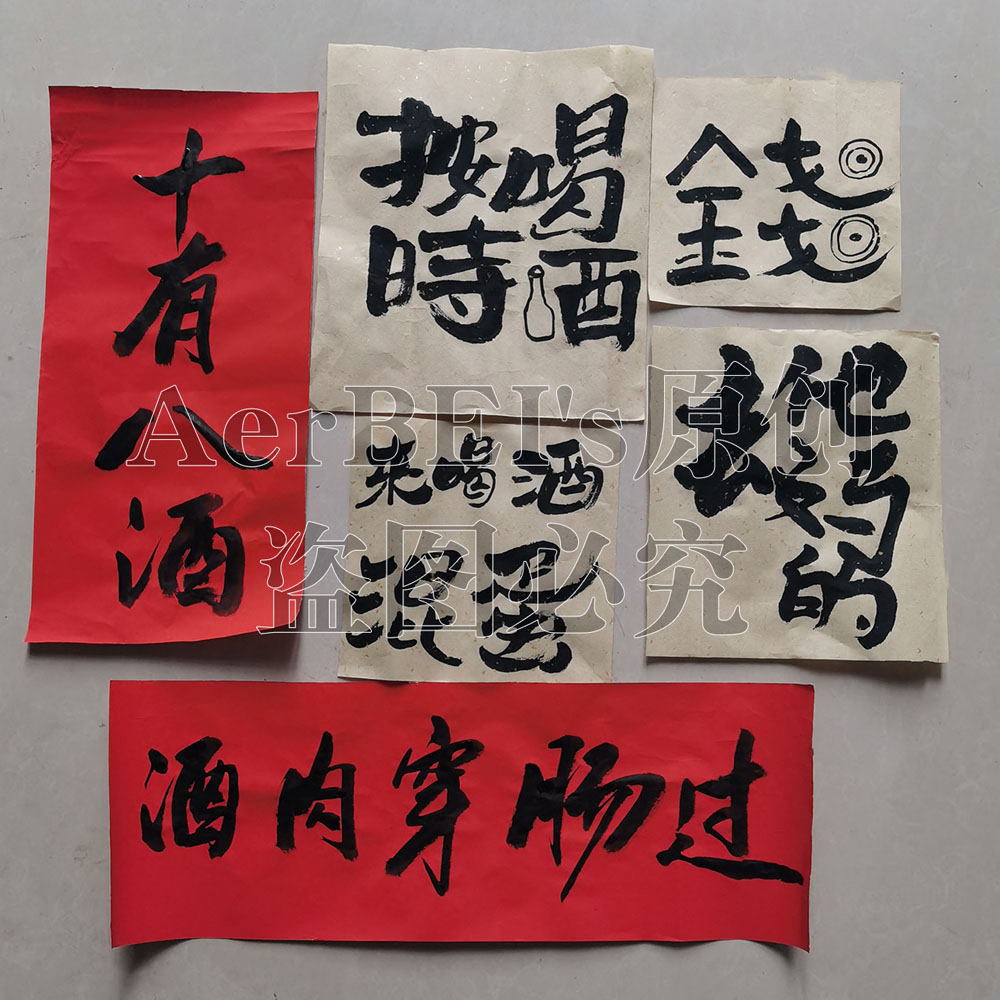 十有八酒
按時喝酒
錢
来喝酒
混蛋
去他妈的
酒肉穿肠过
AerBEI's原创
盗图必究